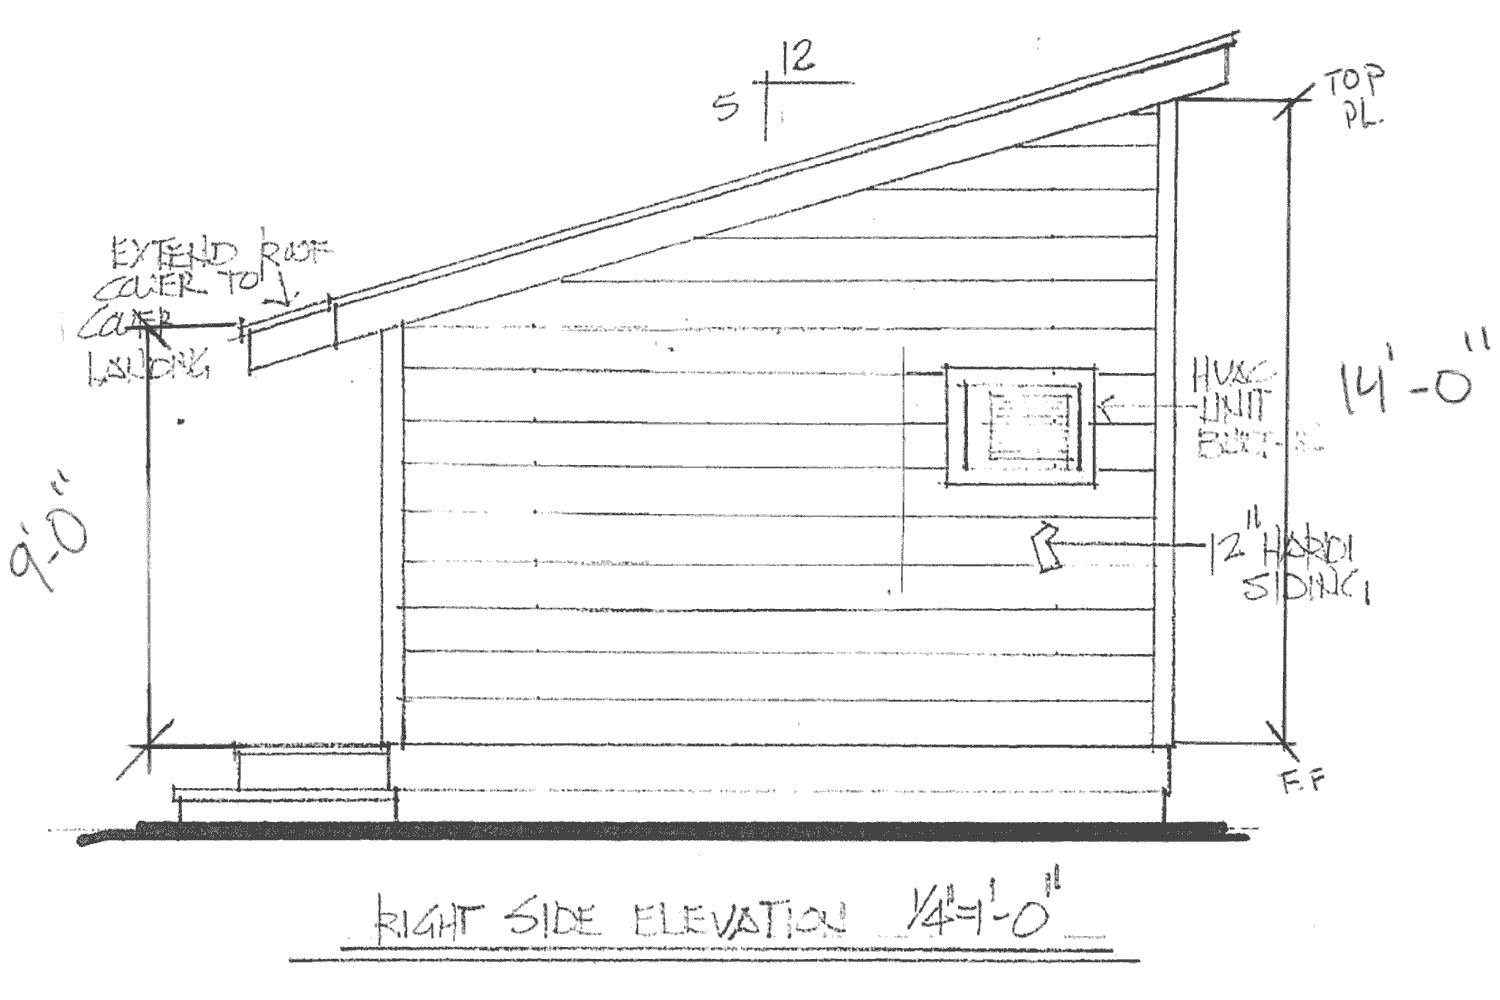 12
5
TOP
PL.
EXTEND ROOF
COVER TO
COVER
LANDING
HVAC
UNIT
BUILT-IN
14'-0"
9'-0"
12" HARDI
SIDING
F.F
RIGHT SIDE ELEVATION 1/4"=1'-0"